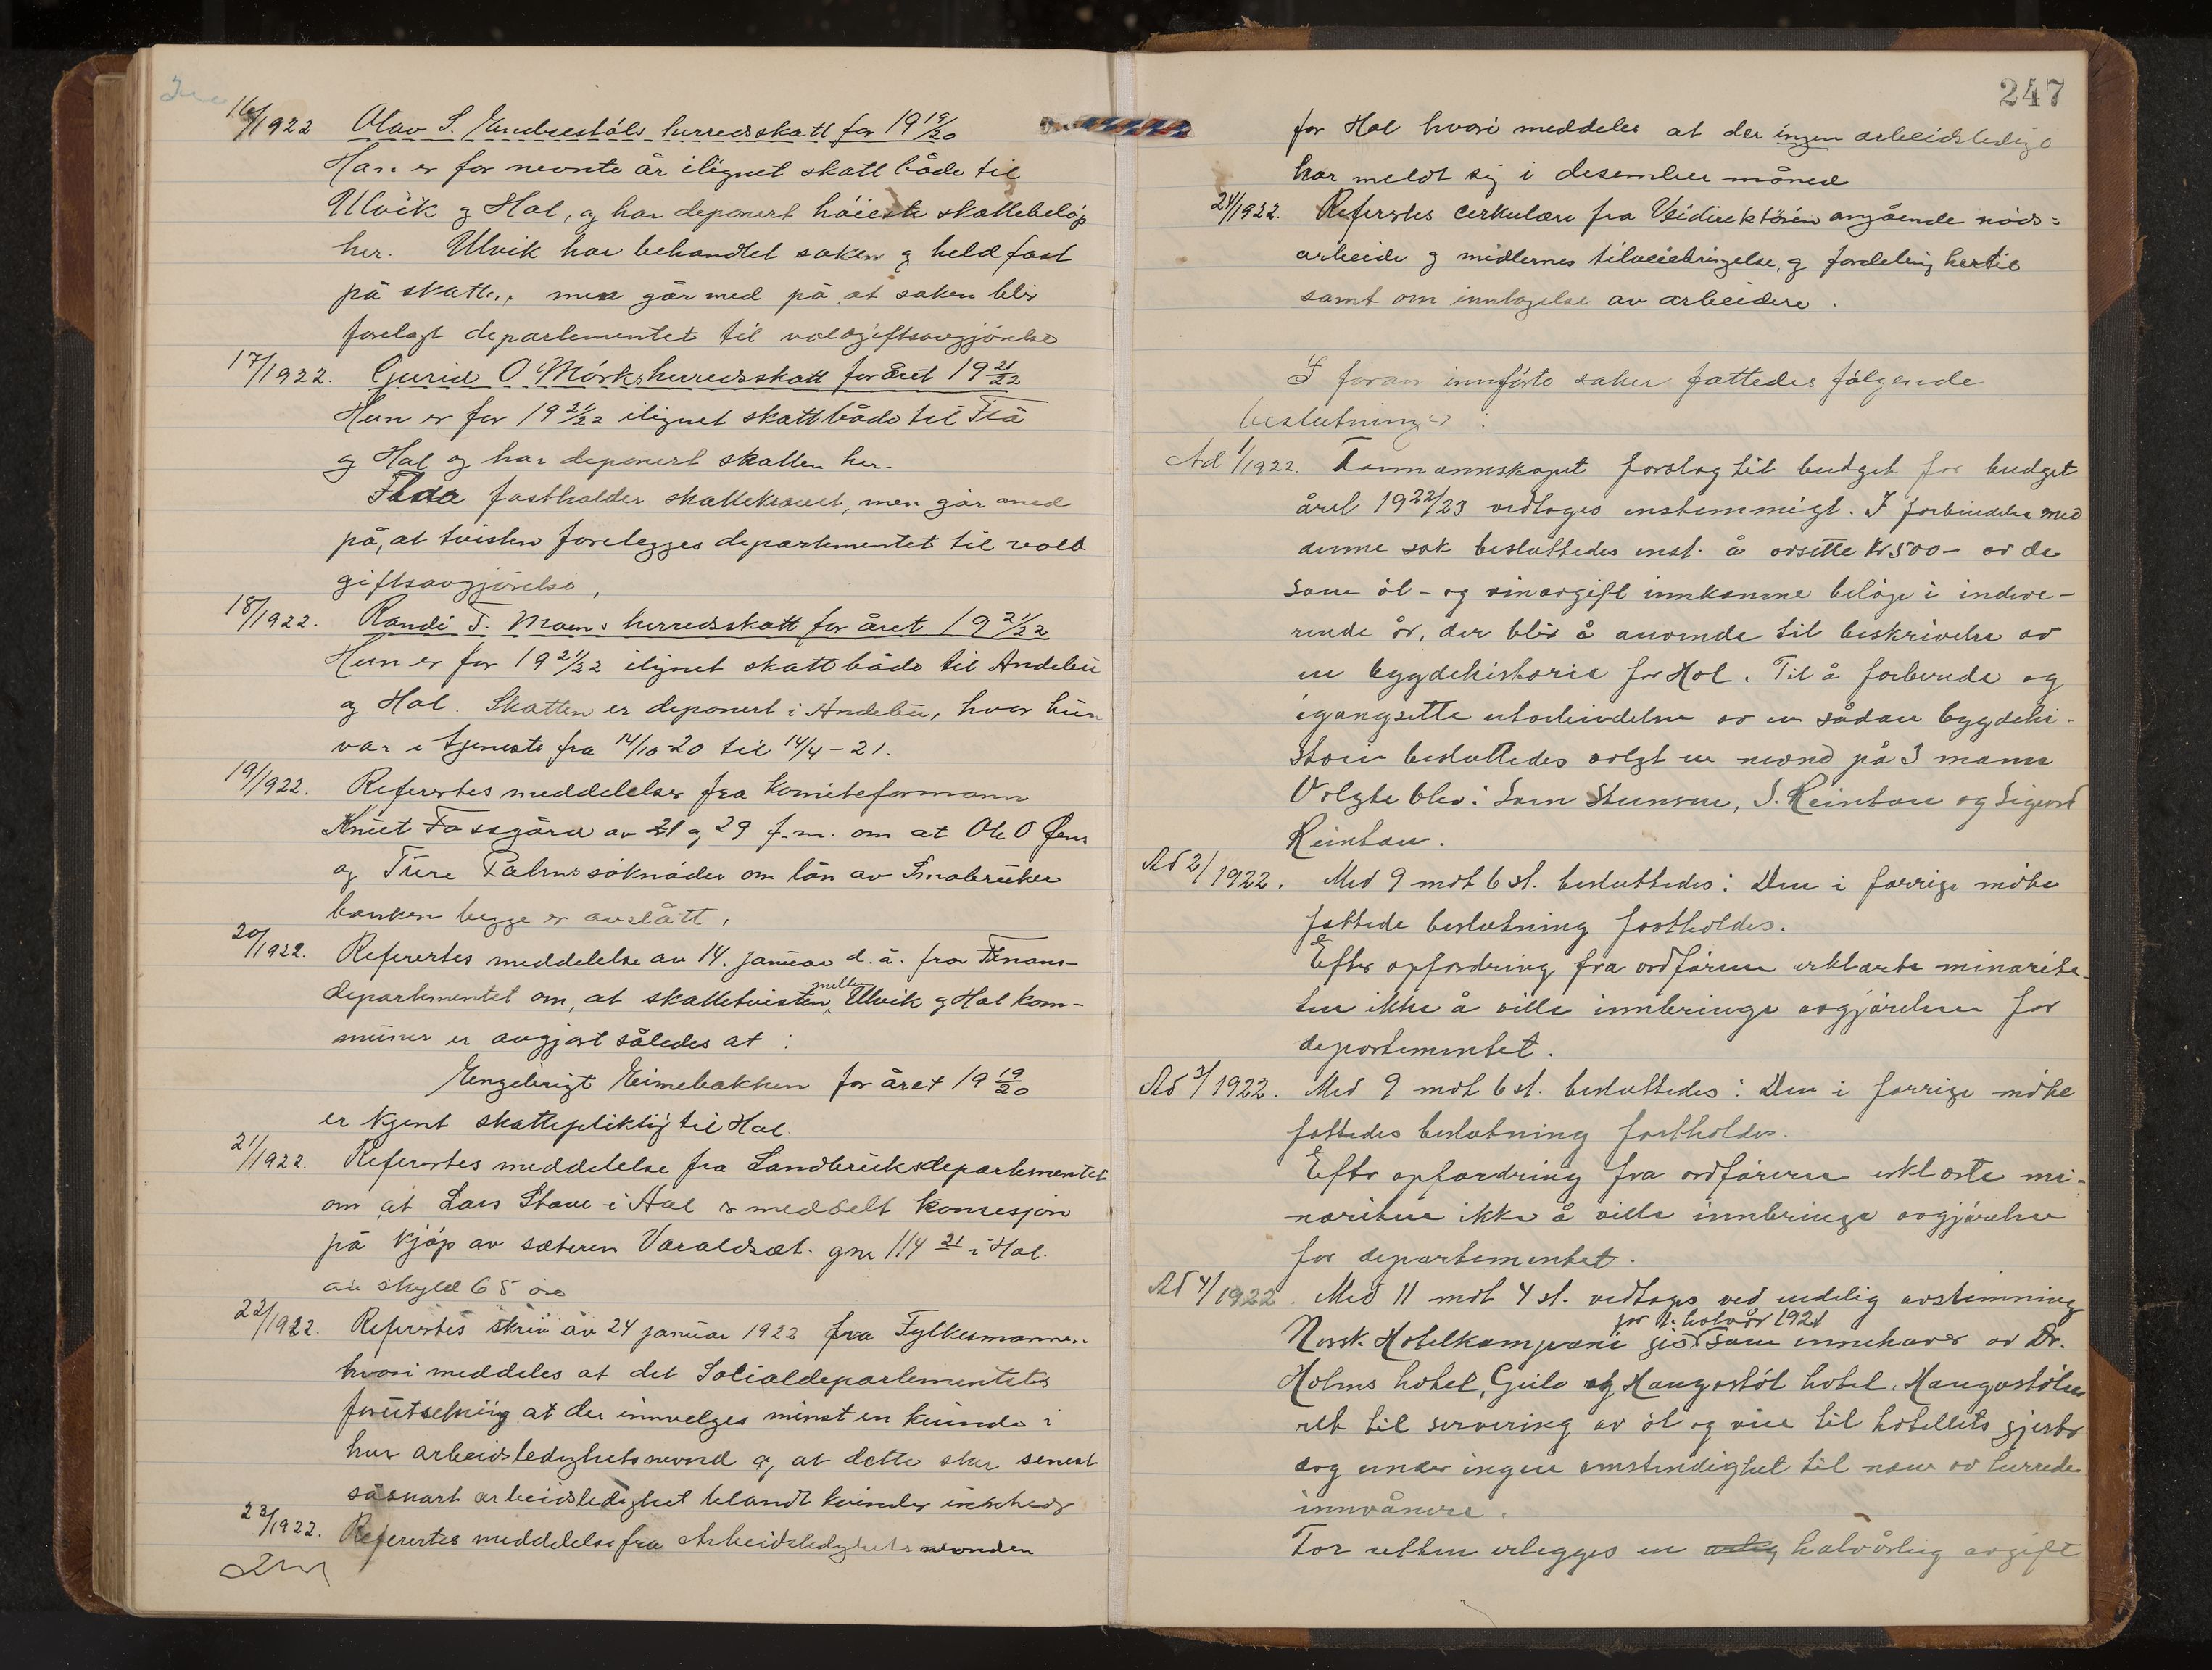 16/1922 Olav S. Endrestöls herredsskatt for 19 19/20
Han er for nevnte år ilignet skatt både til
Ulvik og Hol, og har deponert höieste skattebelöp
her. Ulvik har behandlet saken og held fast
på skatten, men går med på at saken blir
forelagt departementet til voldgiftsavgjörelse
17/1922. Gurid O Mörks herredsskatt for året 19 21/22
Hun er for 19 21/22 ilignet skatt både til Flå
og Hol og har deponert skatten her.
Flåa fastholder skattekravet, men går med
på, at tvisten forelegges departementet til vold
giftsavgjörelse,
18/1922. Randi T. Moens herredsskatt for året 19 21/22
Hun er for 19 21/22 ilignet skatt både til Andebu
og Hol. Skatten er deponert i Andebu, hvor hun
var i tjeneste fra 14/10-20 til 14/4-21.
19/1922. Refertes meddelelser fra Komiteformann
Knut Fossgård av 21 og 29 f.m. om at Ole O
og Ture Palms söknader om lån av Småbruker
banken begge er avslått.
20/1922. Refertes meddelelse av 14. januar d.å. fra Finans-
departementet om, at skattetvisten mellem Ulvik og Hol kom-
muner er avgjort således at :
Engebrigt Eimebakken for året 19 19/20
er kjent skattepliktig til Hol.
21/1922. Refertes meddelelse fra Landbruksdepartementet
om at Lars Stave i Hol er meddelt konsesjon
på kjöp av sæteren Varaldset gnr 114 21 i Hol.
av skyld 65 öre
22/1922. Refertes skriv av 24 januar 1922 fra Fylkesmannen
hvori meddeles at det Socialdepartementets
forutsetning at der innvelges minst en kvinde i
hver arbeidsledighetsnevnd og at dette sker senest
såsnart arbeidsledighet blandt kvinder inntreder
23/1922. Refertes meddelelse fra Arbeidsledighetsnevnden
247
for Hol hvori meddeles at der ingen arbeidsledige
har meldt sig i desember måned
24/1922. Refertes cirkulære fra Veidirektören angående nöds=
arbeide og midlernes tilveiebringelse og fordeling hertil
samt om inntagelse av arbeidere.
I foran innförte saker fattedes fölgende
beslutninger :
Ad 1/1922. Formannskapets forslag til budget for budget
året 19 22/23 vedtoges enstemmigt. I forbindelse med
denne sak besluttedes enst. å avsette kr 500- av de
som öl- og vinavgift innkomne belöp i indevæ-
rende år, der blir å anvende til beskrivelse av
en bygdehistorie for Hol. Til å forberede og
igangsette utarbeidelsen av en sådan bygdehi-
storie besluttedes valgt en nevnd på 3 mann
Valgte blev: Lars Stensen, S. Reinton og Sigurd
Reinton.
Ad 2/1922. Med 9 mot 6 st. besluttedes: Den i forrige möte
fattede beslutning fastholdes.
Efter opfordring fra ordföreren erklærte minorite-
ten ikke å ville innbringe avgjörelsen for
departementet.
Ad 3/1922. Med 9 mot 6 st. besluttedes: Den i forrige möte
fattedes beslutning fastholdes.
Efter opfordring fra ordföreren erklærte mi-
noriteten ikke å ville innbringe avgjörelsen
for departementet.
Ad 4/1922. Med 11 mot 4 st. vedtoges ved endelig avstemning
for 1. halvår 1921
Norsk Hotelkompani gis som innehaver av Dr.
Holms hotel, Geilo og Haugastöl hotel, Haugastölen
rett til servering av öl og vin til hotellets gjester
dog under ingen omstendighet til noen av herredets
innvånere.
For retten erlegges en årlig halvårlig avgift